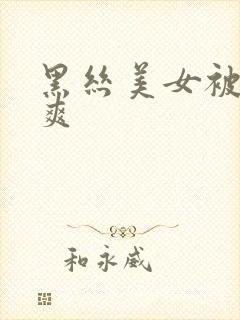 黑丝美女被
爽
和永威